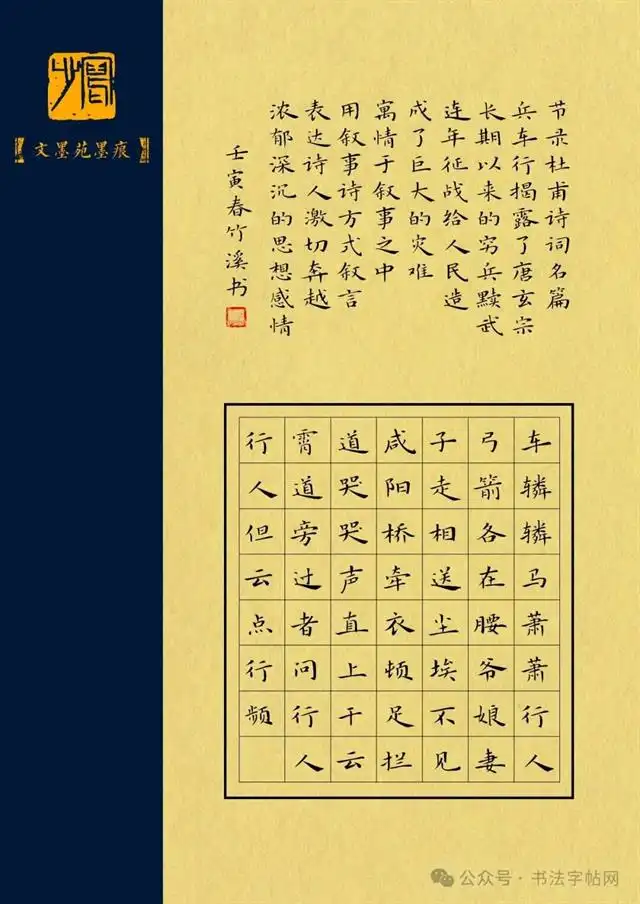 文墨苑墨痕
节录杜甫诗词名篇
兵车行揭露了唐玄宗
长期以来的穷兵黩武
连年征战给人民造
成了巨大的灾难
寓情于叙事之中
用叙事诗方式叙言
表达诗人激切奔越
浓郁深沉的思想感情
壬寅春竹溪书
车辚辚马萧萧行人
弓箭各在腰爷娘妻
子走相送尘埃不见
咸阳桥牵衣顿足拦
道哭哭声直上干云
霄道旁过者问行人
行人但云点行频
公众号·书法字帖网